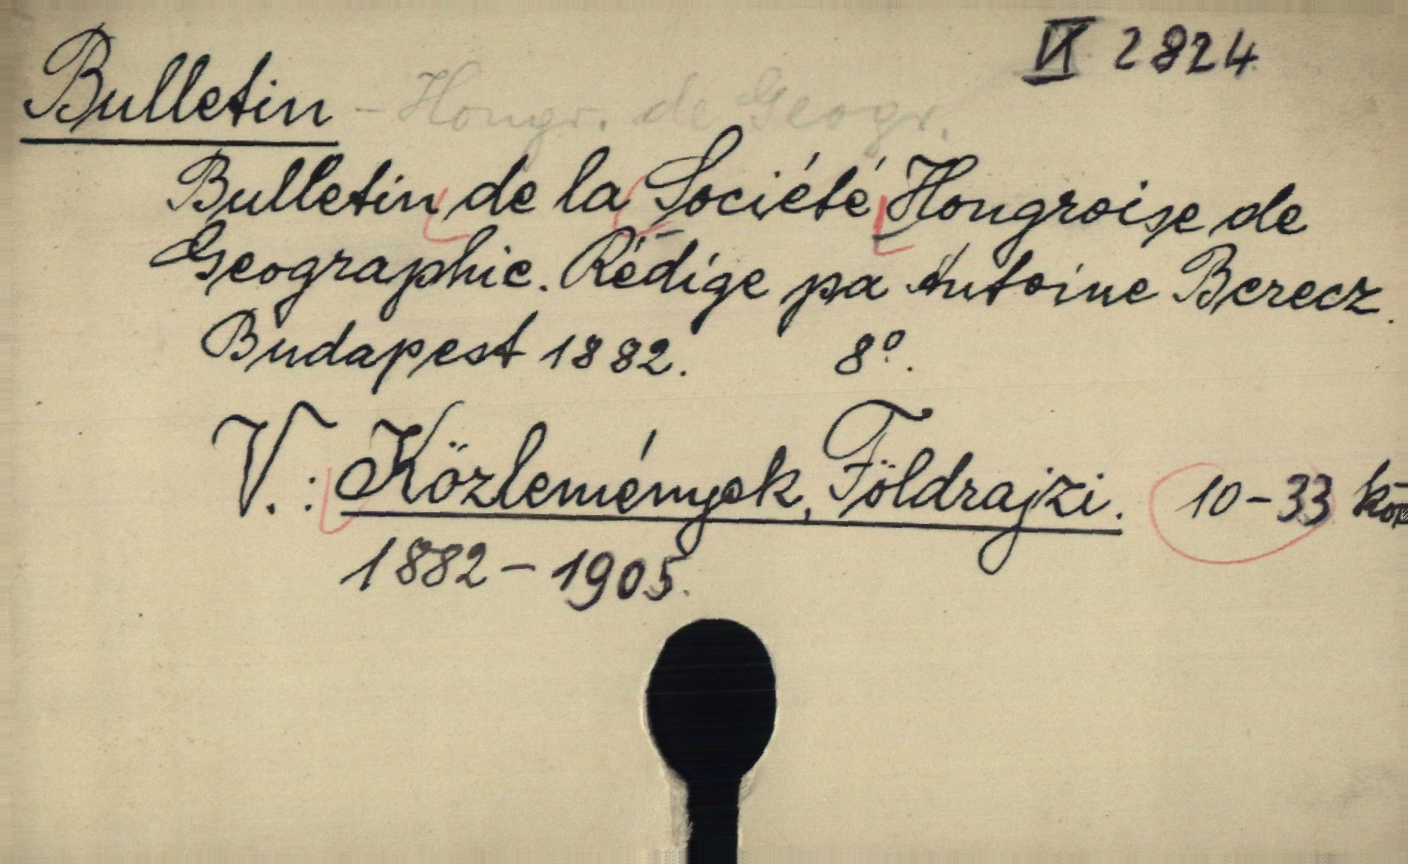 VI 2824
Bulletin - Hongr. de Geogr.
Bulletin de la Société Hongroise de
Geographie. Rédige pa Antoine Berecz.
Budapest 1882. 8º.
V.: Közlemények, Földrajzi. 10-33 köt
1882-1905.